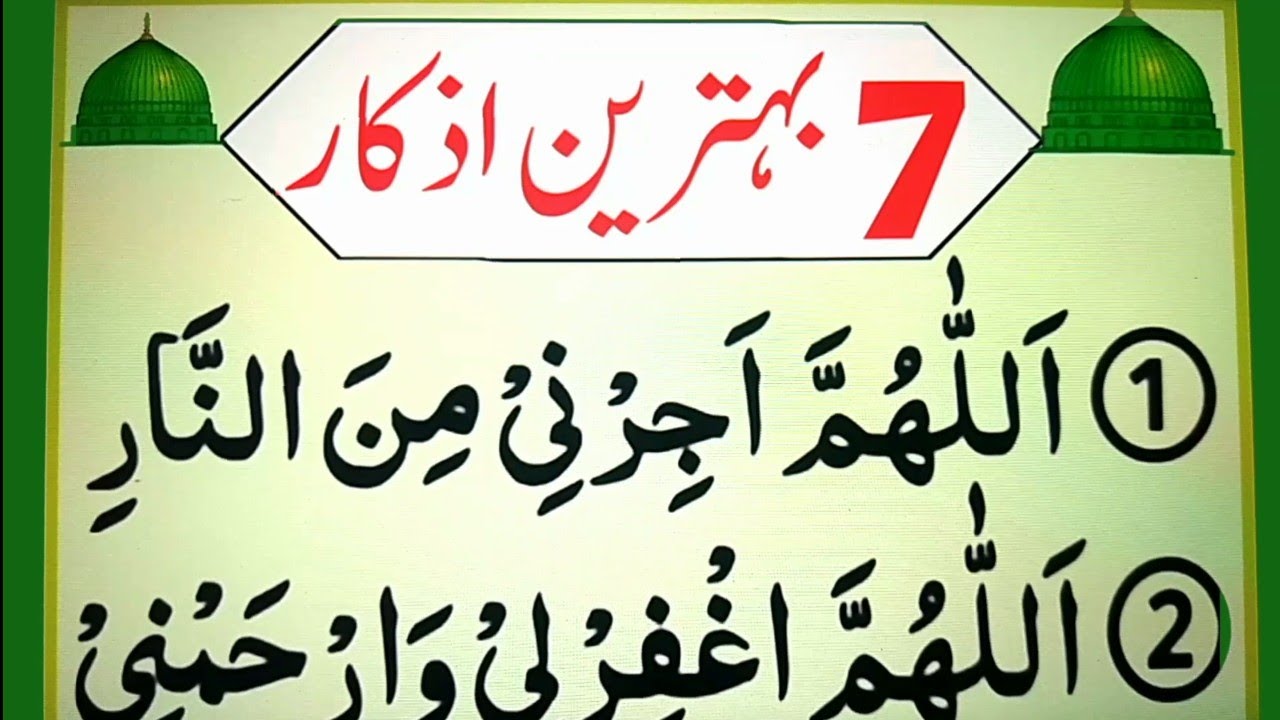 7 بہترین اذکار
① اَللّٰهُمَّ اَجِرْنِیْ مِنَ النَّارِ
② اَللّٰهُمَّ اغْفِرْلِیْ وَارْحَمْنِیْ